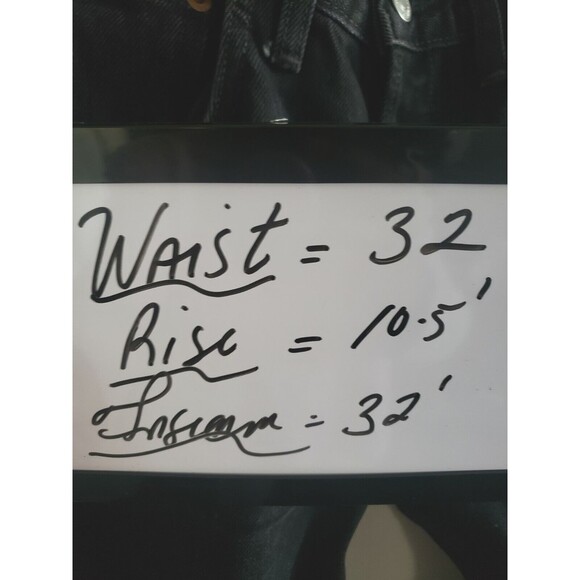 Waist = 32
Rise = 10.5'
Inseam = 32'